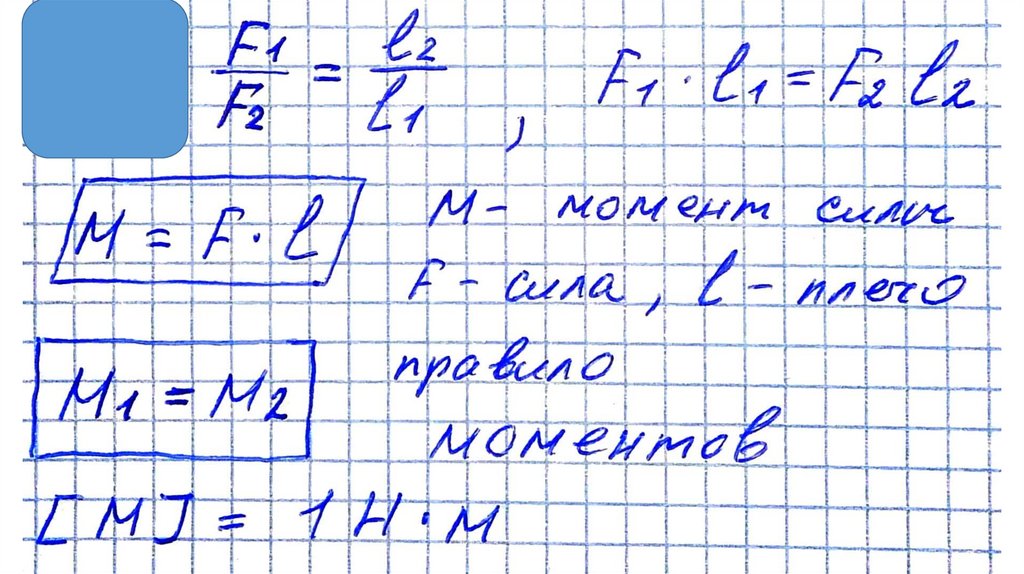 F1/F2 = l2/l1 , F1 · l1 = F2 l2
M = F · l
M – момент силы
F – сила, l – плечо
M1 = M2
правило
моментов
[M] = 1 Н · м